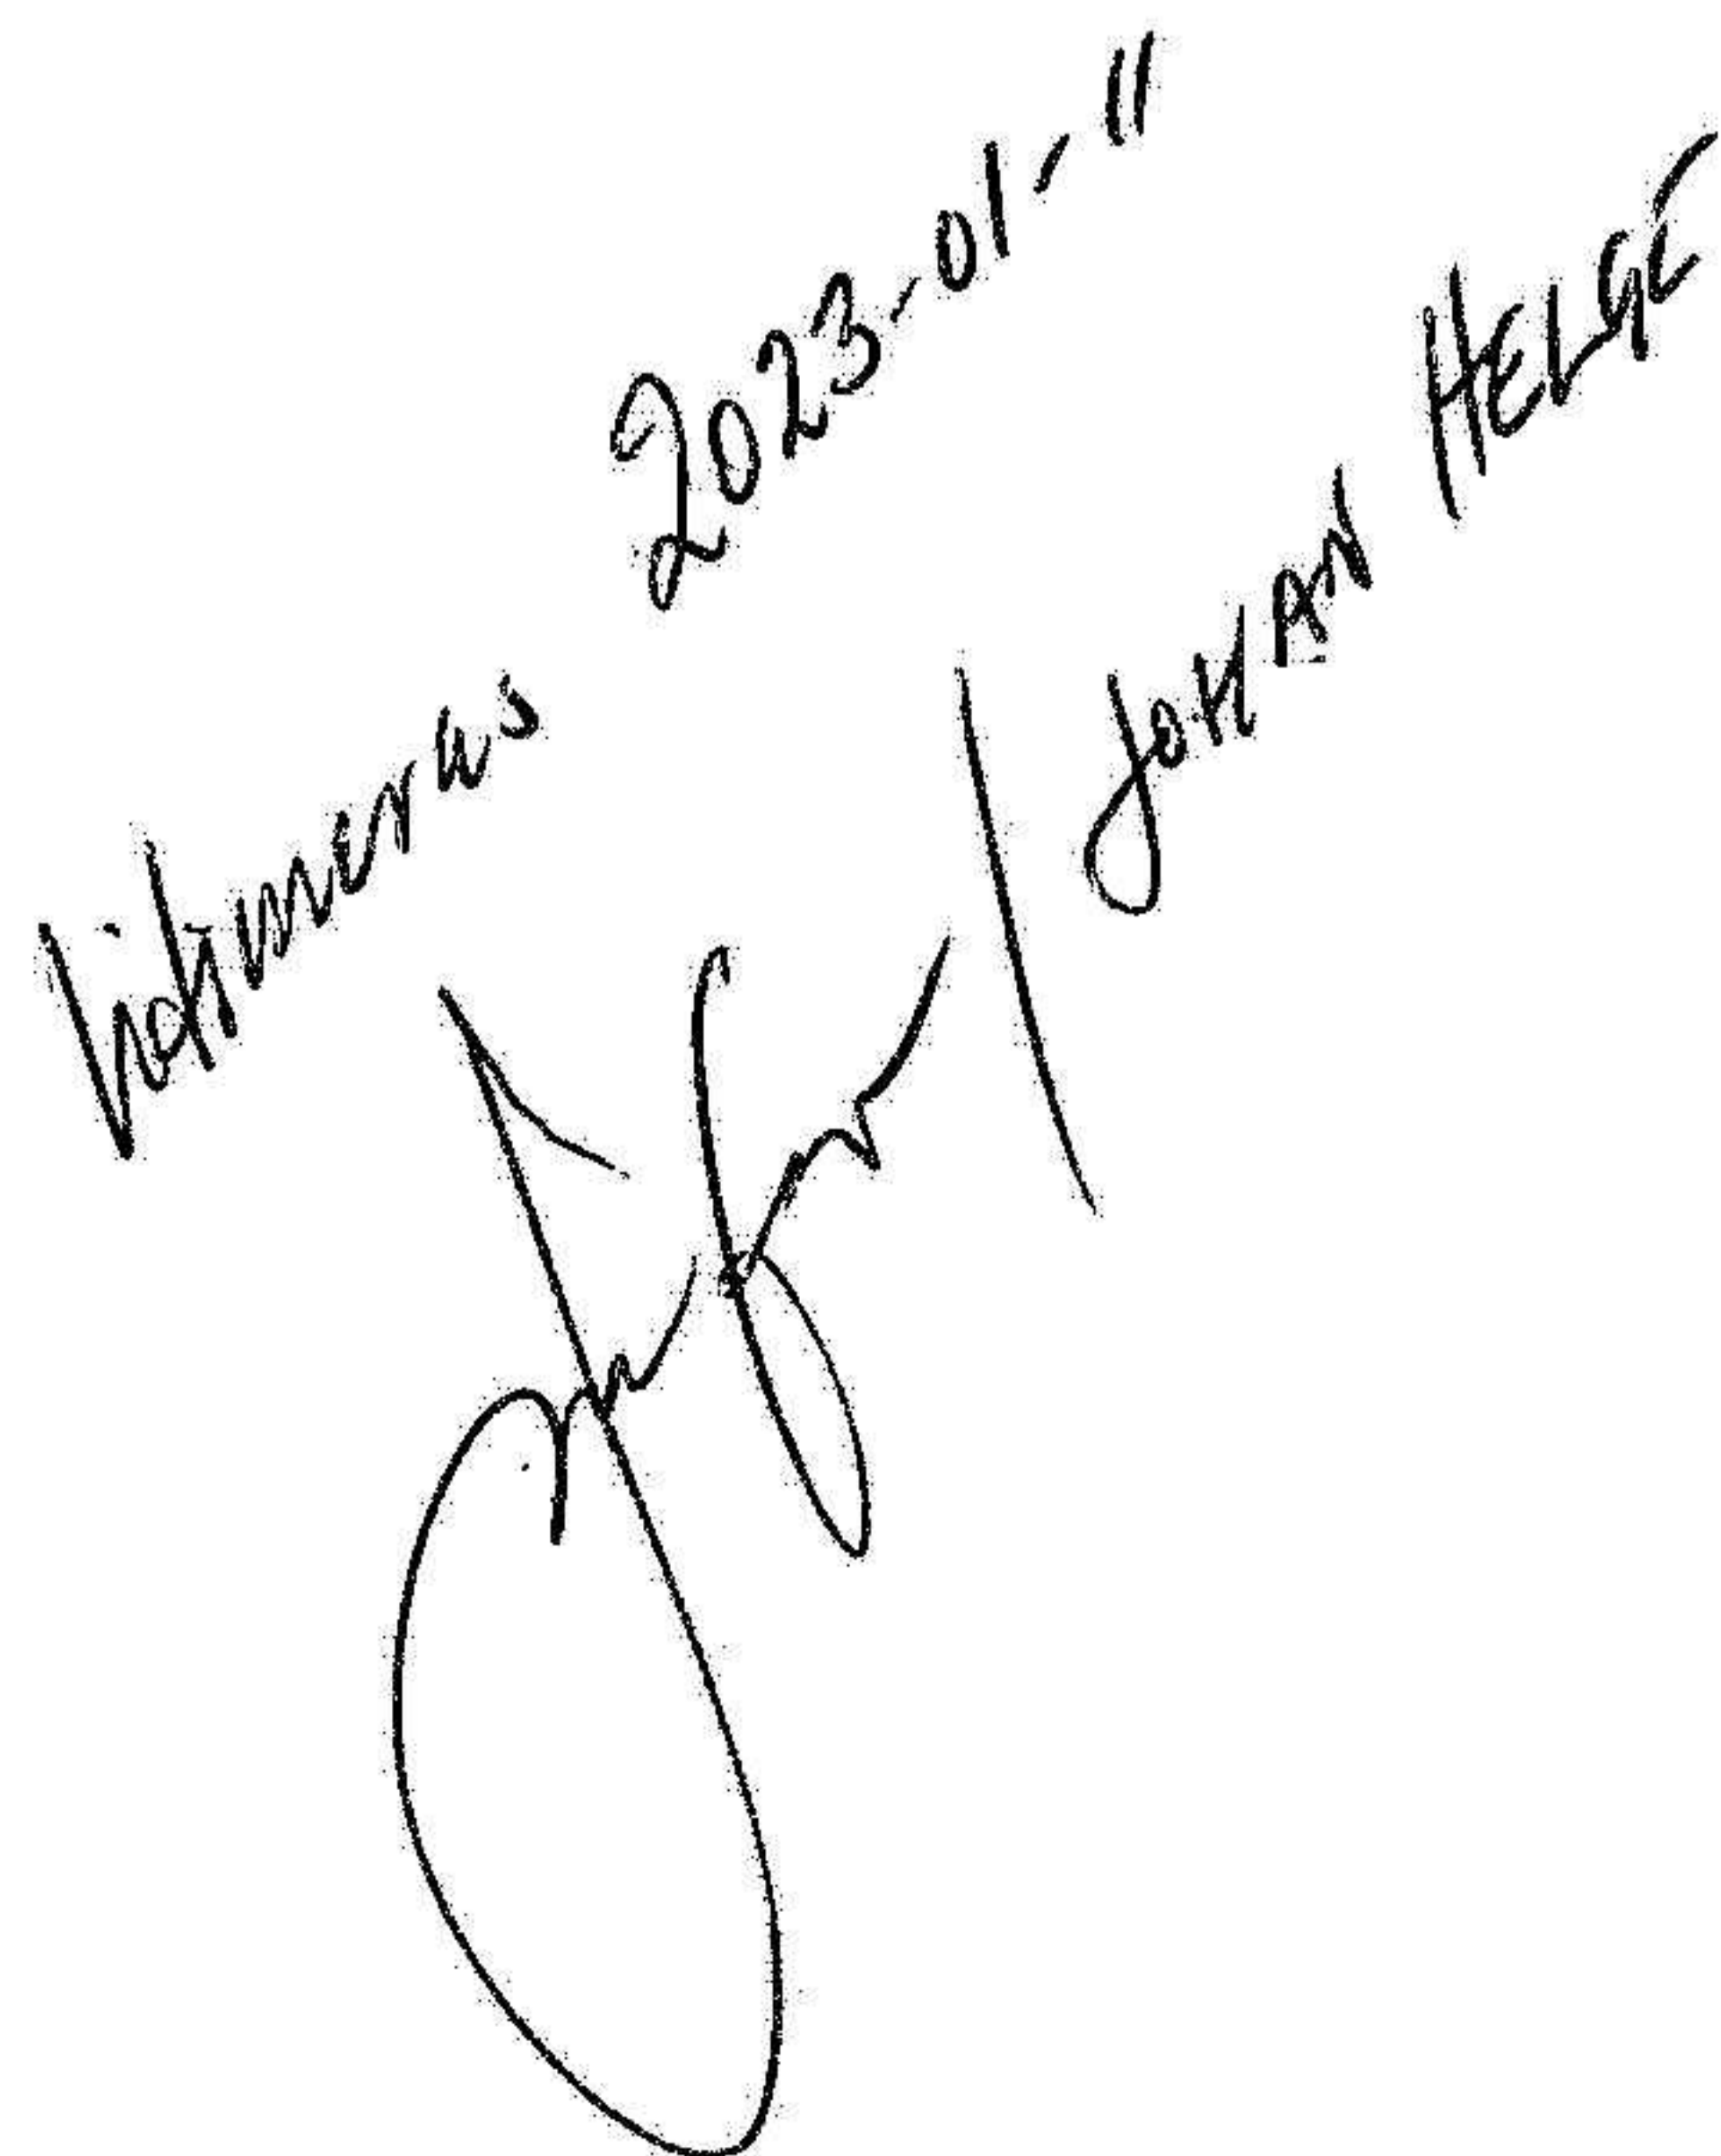 Vidimeras 2023-01-11
/ JOHAN HELGE